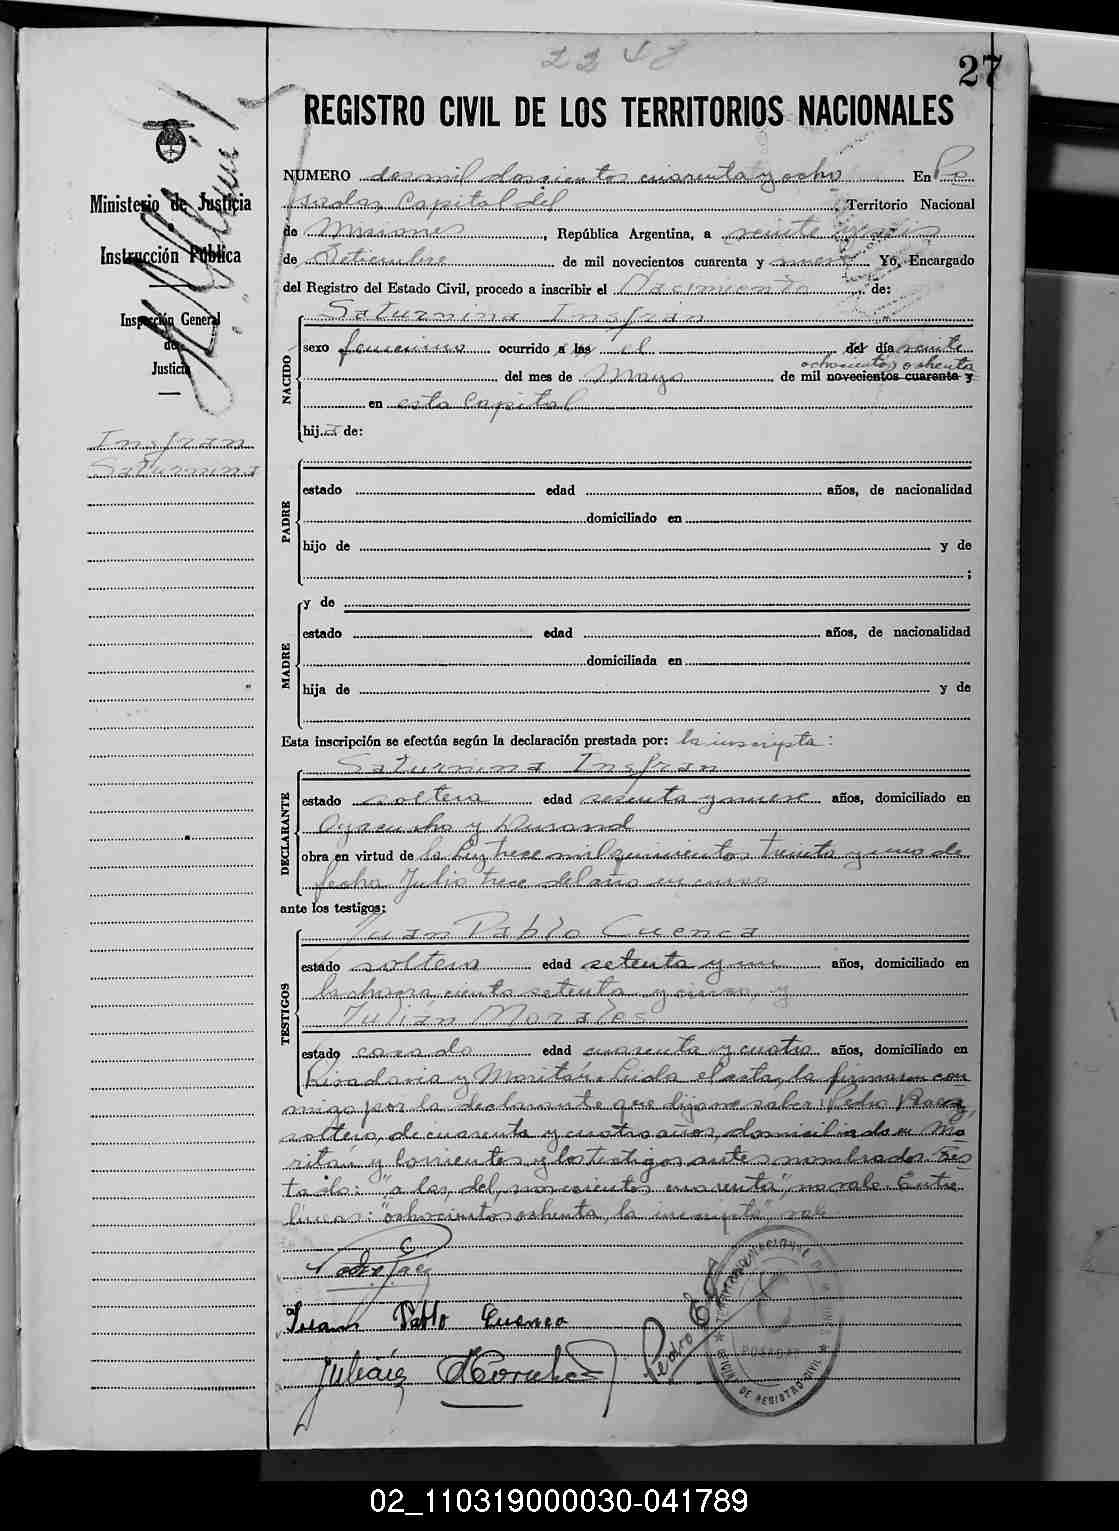 2248
27
REGISTRO CIVIL DE LOS TERRITORIOS NACIONALES
Ministerio de Justicia
Instrucción Pública
Inspección General
de
Justicia
Insfran
Saturnina
NUMERO dos mil doscientos cuarenta y ocho En Po
sadas, Capital del Territorio Nacional
de Misiones, República Argentina, a veinte y seis
de Setiembre de mil novecientos cuarenta y nueve Yo, Encargado
del Registro del Estado Civil, procedo a inscribir el Nacimiento de:
Saturnina Insfran
NACIDO
sexo femenino ocurrido a las el del día veinte
ochocientos ochenta
del mes de Mayo de mil novecientos cuarenta y
en esta Capital
hij a de:
PADRE
estado edad años, de nacionalidad
domiciliado en
hijo de y de
;
MADRE
y de
estado edad años, de nacionalidad
domiciliada en
hija de y de
Esta inscripción se efectúa según la declaración prestada por: la inscripta:
Saturnina Insfran
DECLARANTE
estado soltera edad sesenta y nueve años, domiciliado en
Ayacucho y Durand
obra en virtud de la Ley trece mil quinientos treinta y uno de
fecha Julio trece del año en curso
ante los testigos:
Juan Pablo Cuenca
TESTIGOS
estado soltero edad setenta y un años, domiciliado en
la chacra ciento setenta y cinco, y
Julián Morales
estado casado edad cuarenta y cuatro años, domiciliado en
Rivadavia y Moritán. Leida el acta, la firmaron con
migo por la declarante que dijo no saber: Pedro
soltero, de cuarenta y cuatro años, domiciliado en Mo
ritán y Corrientes y los testigos antes nombrados. Tes
tado: "a las, del, novecientos cuarenta", no vale. Entre
lineas: "ochocientos ochenta, la inscripta", vale
Juan Pablo Cuenca
Julián
Pedro
POSADAS
OFICINA DE REGISTRO CIVIL
02_110319000030-041789